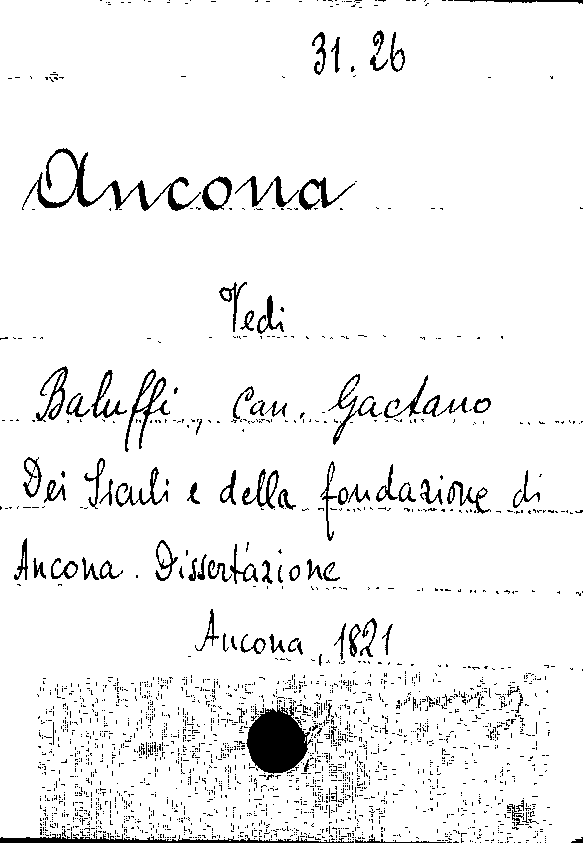 31. 26
Ancona
Vedi
Baluffi, can. Gaetano
Dei Siculi e della fondazione di
Ancona. Dissertazione
Ancona, 1821